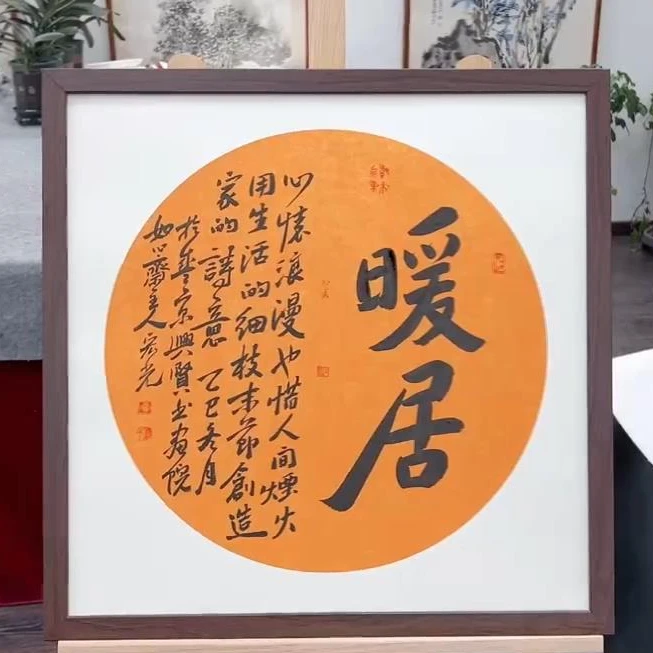 暖居
心懷浪漫也惜人間煙火
用生活的細枝末節創造
家的詩意 乙巳冬月
於京興賢书畫院
如心齋主人宏光